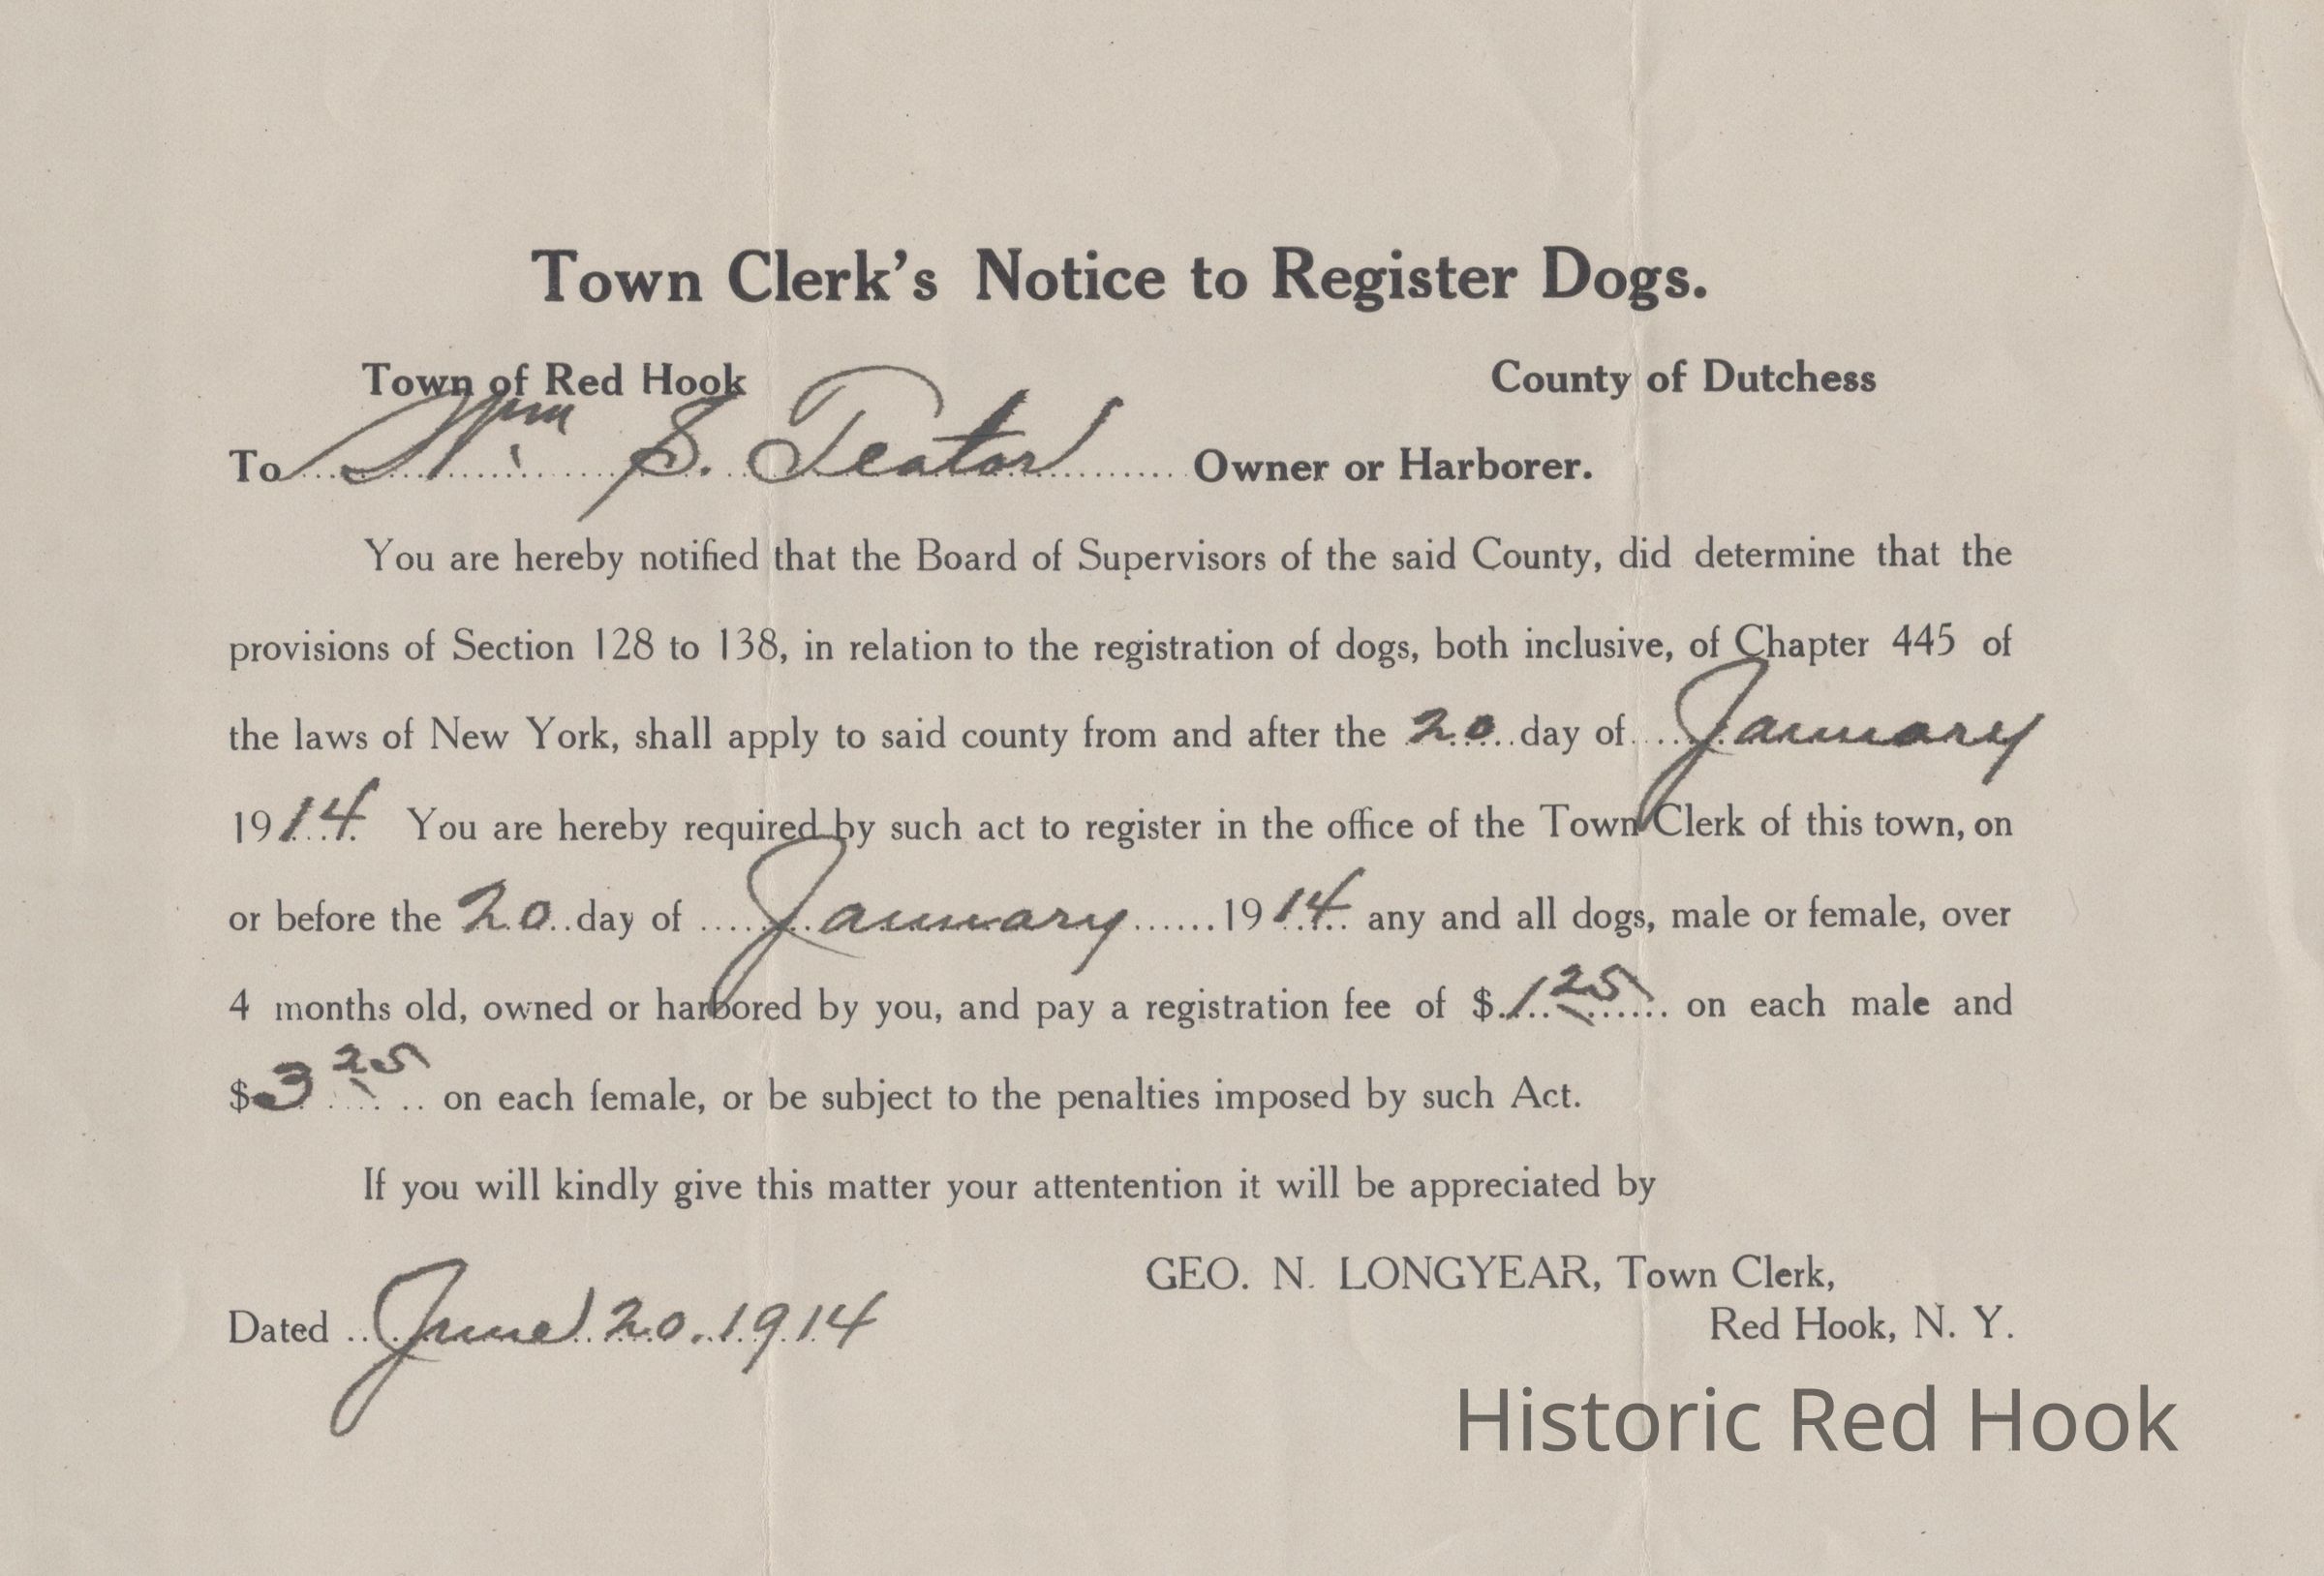 Town Clerk's Notice to Register Dogs.
Town of Red Hook County of Dutchess
To Wm S. Teator Owner or Harborer.
You are hereby notified that the Board of Supervisors of the said County, did determine that the
provisions of Section 128 to 138, in relation to the registration of dogs, both inclusive, of Chapter 445 of
the laws of New York, shall apply to said county from and after the 20 day of January
1914 You are hereby required by such act to register in the office of the Town Clerk of this town, on
or before the 20 day of January 1914 any and all dogs, male or female, over
4 months old, owned or harbored by you, and pay a registration fee of $1 25 on each male and
$3 25 on each female, or be subject to the penalties imposed by such Act.
If you will kindly give this matter your attentention it will be appreciated by
GEO. N. LONGYEAR, Town Clerk,
Dated June 20. 1914 Red Hook, N. Y.
Historic Red Hook